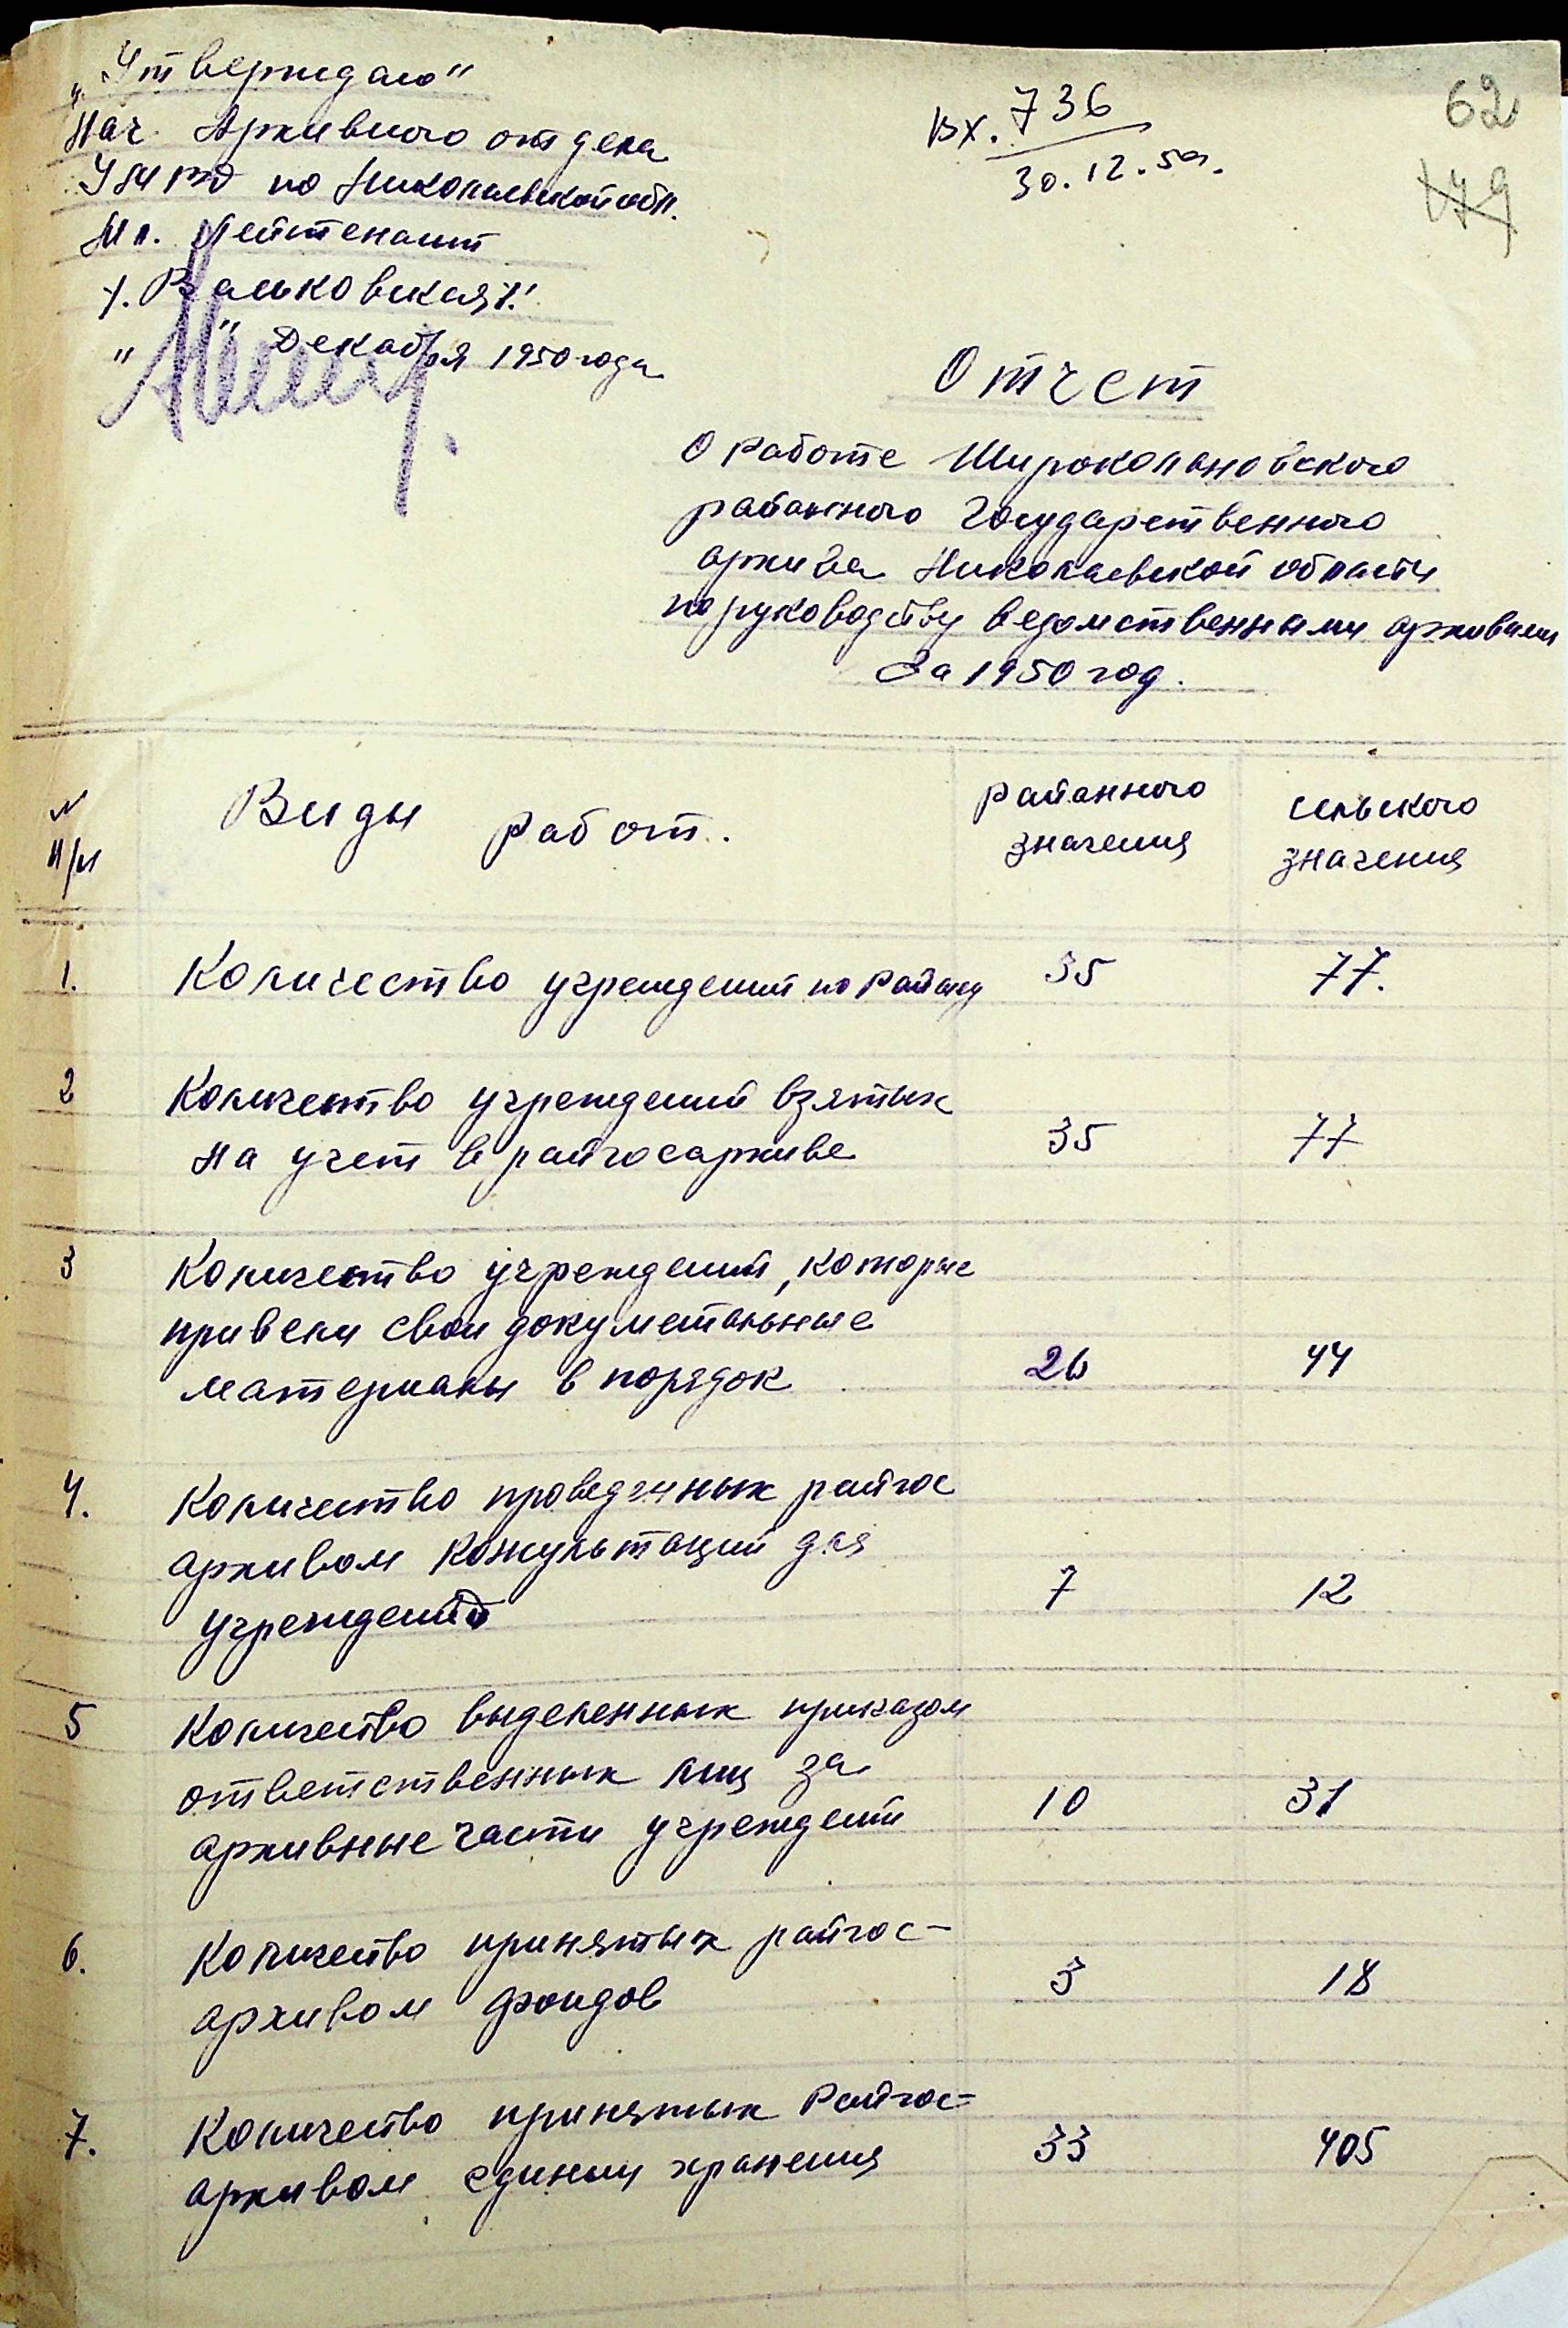 „Утверждаю"
Нач. Архивного отдела
УМВД по Николаевской обл.
Мл. Лейтенант
/. Вальковская /.
" " Декабря 1950 года
Вх. 736
30.12.50г.
62
179
Отчет
О работе Широколановского
районного Государственного
архива Николаевской области
по руководству ведомственными архивами
За 1950 год.
№ п/п
Виды работ.
районного значения
сельского значения
1. Количество учреждений по району 35 77.
2 Количество учреждений взятых
на учет в райгосархиве 35 77
3 Количество учреждений, которые
привели свои документальные
материалы в порядок 26 44
4. Количество проведенных райгос
архивом консультаций для
учреждений 7 12
5 Количество выделенных приказом
ответственных лиц за
архивные части учреждений 10 31
6. Количество принятых райгос-
архивом фондов 3 18
7. Количество принятых Райгос-
архивом единиц хранения 33 405